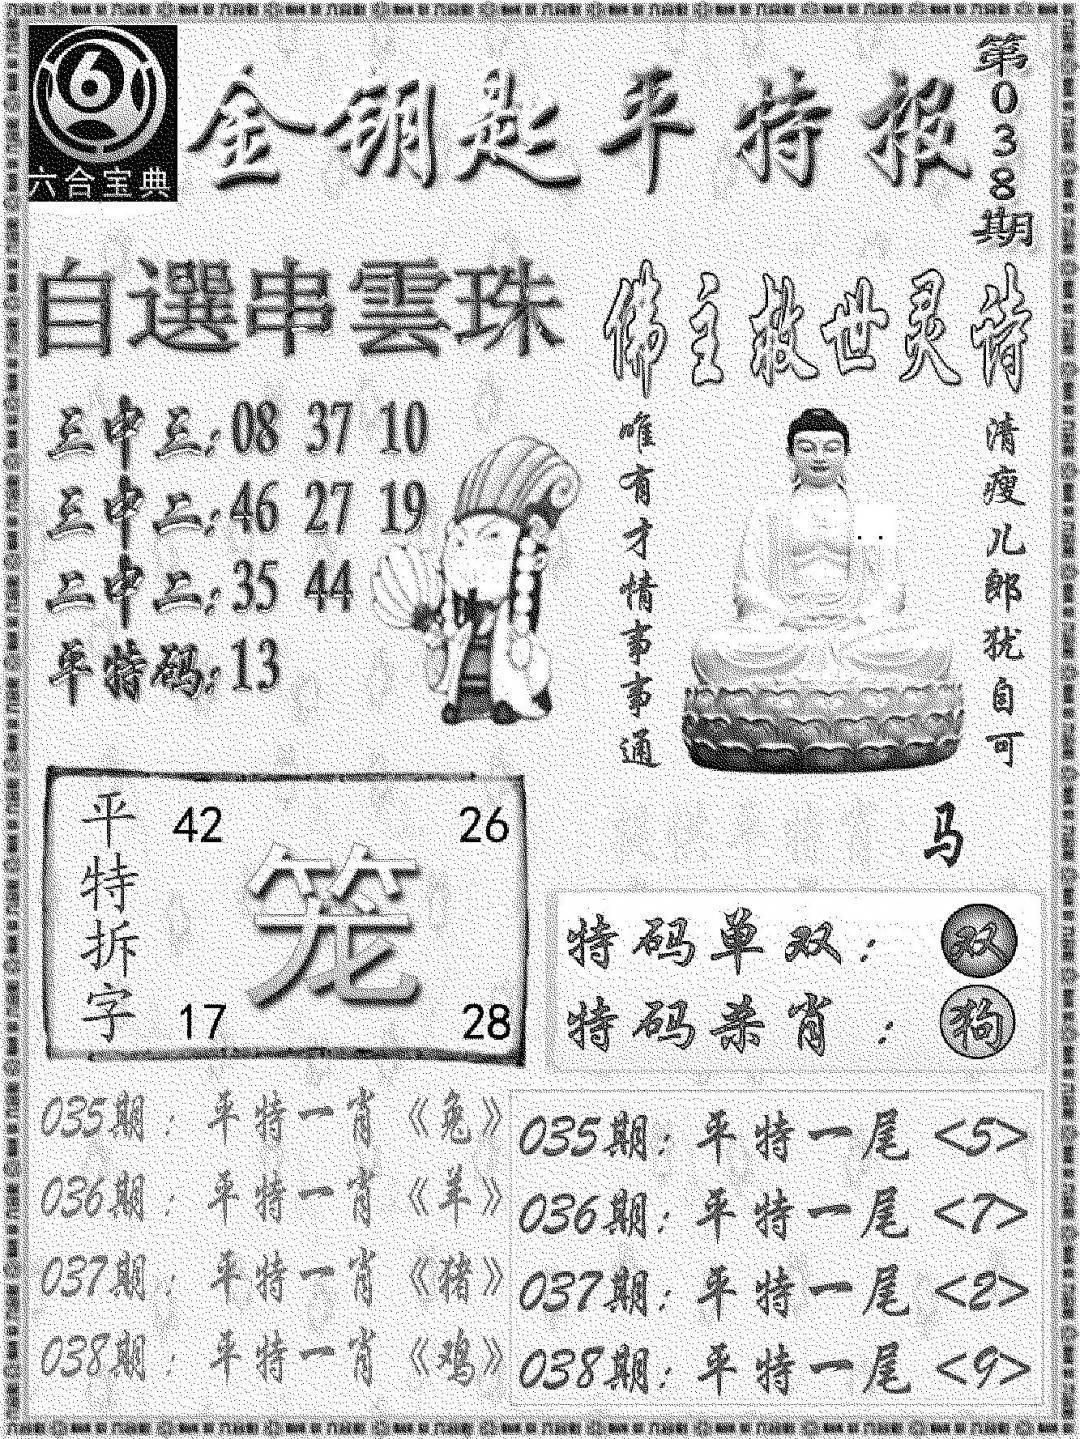 6
六合宝典
金钥匙平特报
第038期
自選串雲珠
三中三:08 37 10
三中二:46 27 19
二中二:35 44
平特码:13
佛主救世灵诗
清瘦儿郎犹自可
唯有才情事事通
马
平特拆字
42 26
笼
17 28
特码单双:双
特码杀肖:狗
035期:平特一肖《兔》
036期:平特一肖《羊》
037期:平特一肖《猪》
038期:平特一肖《鸡》
035期:平特一尾<5>
036期:平特一尾<7>
037期:平特一尾<2>
038期:平特一尾<9>